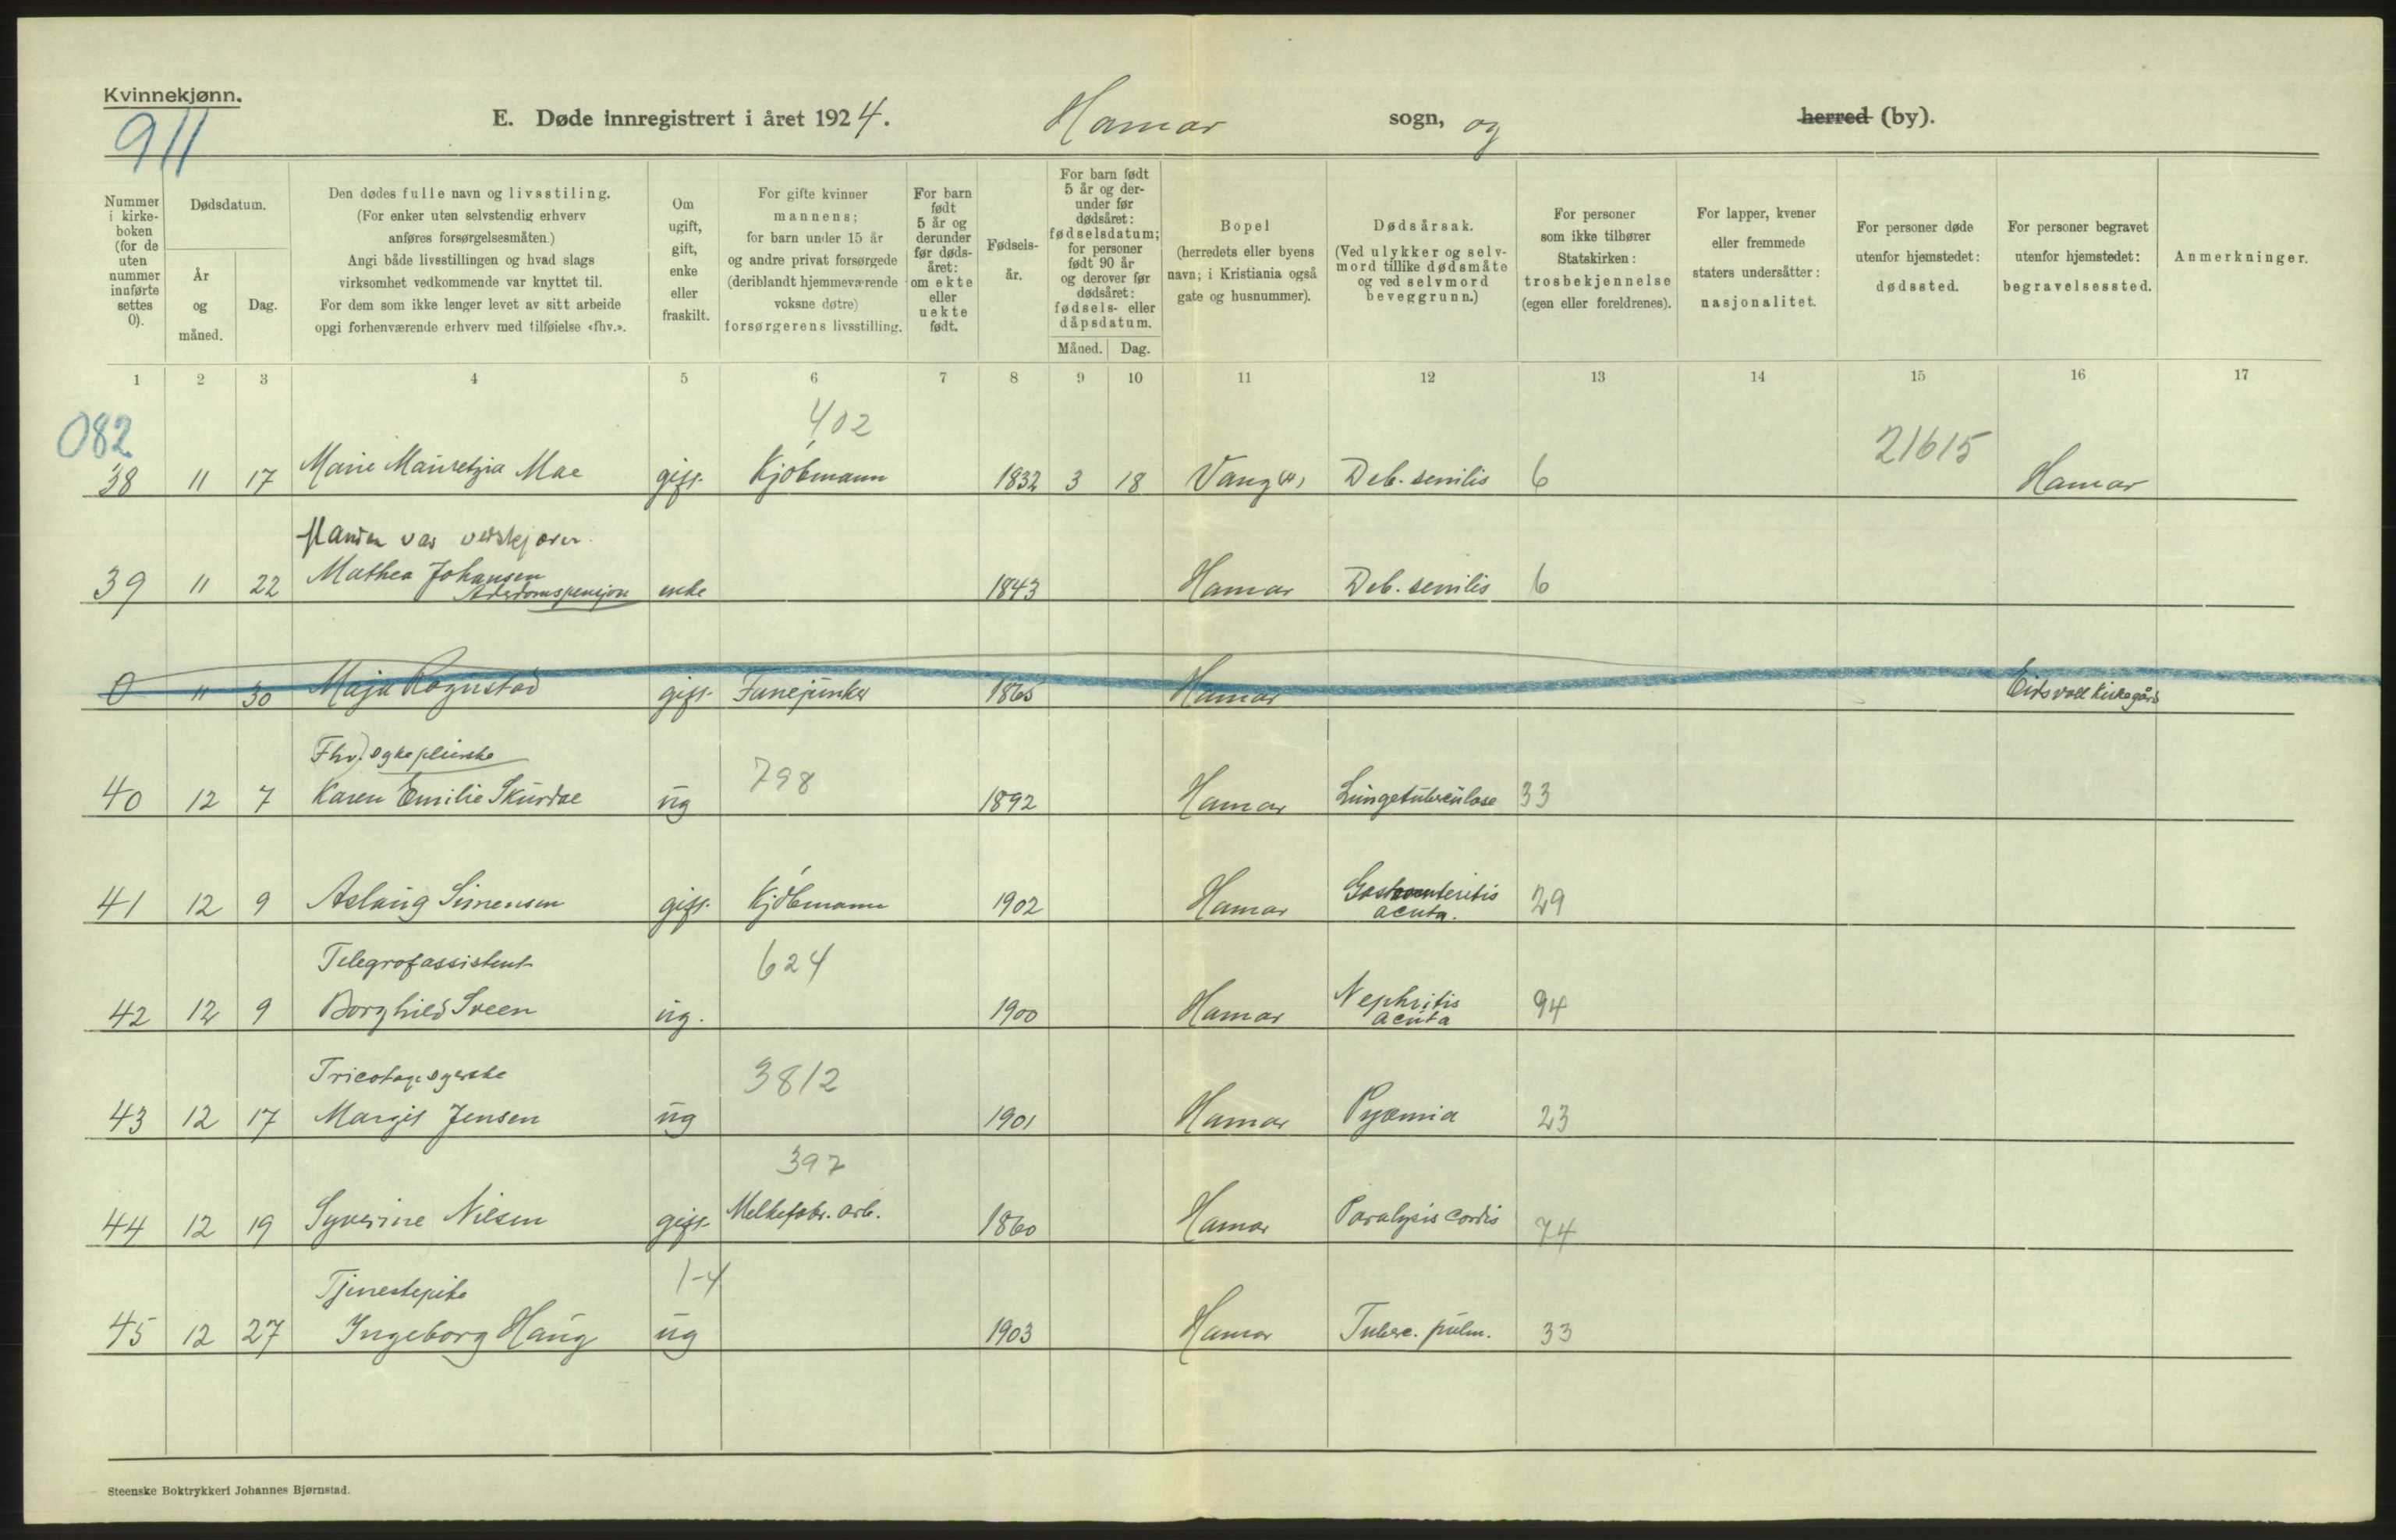 Kvinnekjønn.
911
E. Døde innregistrert i året 1924. Hamar sogn, og herred (by).
Nummer i kirke-boken (for de uten nummer innførte settes 0).
Dødsdatum.
År og måned.
Dag.
Den dødes fulle navn og livsstiling.
(For enker uten selvstendig erhverv
anføres forsørgelsesmåten.)
Angi både livsstillingen og hvad slags
virksomhet vedkommende var knyttet til.
For dem som ikke lenger levet av sitt arbeide
opgi forhenværende erhverv med tilføielse «fhv.».
Om ugift, gift, enke eller fraskilt.
For gifte kvinner
mannens;
for barn under 15 år
og andre privat forsørgede
(deriblandt hjemmeværende
voksne døtre)
forsørgerens livsstilling.
For barn født 5 år og derunder før døds-året: om ekte eller uekte født.
Fødsels-år.
For barn født 5 år og der-under før dødsåret: fødselsdatum; for personer født 90 år og derover før dødsåret: fødsels- eller dåpsdatum.
Måned. Dag.
Bopel
(herredets eller byens
navn; i Kristiania også
gate og husnummer).
Dødsårsak.
(Ved ulykker og selv-
mord tillike dødsmåte
og ved selvmord
beveggrunn.)
For personer
som ikke tilhører
Statskirken:
trosbekjennelse
(egen eller foreldrenes).
For lapper, kvener
eller fremmede
staters undersåtter:
nasjonalitet.
For personer døde
utenfor hjemstedet:
dødssted.
For personer begravet
utenfor hjemstedet:
begravelsessted.
Anmerkninger.
1 2 3 4 5 6 7 8 9 10 11 12 13 14 15 16 17
082 402 21615
38 11 17 Marie Mauretzia Moe gift Kjöbmann 1832 3 18 Vang (H) Deb. senilis 6 Hamar
Manden var vedskjærer.
39 11 22 Mathea Johansen enke 1843 Hamar Deb. senilis 6
Alderdomspensjon
0 11 30 Maja Rognstad gift Fanejunker 1865 Hamar Eidsvoll kirkegård
Fhv. sykepleierske
798
40 12 7 Karen Emilie Skurdal ug 1892 Hamar Lungetuberculose 33
41 12 9 Aslaug Simensen gift Kjöbmann 1902 Hamar Gastroenteritis acuta. 29
Telegrafassistent
624
42 12 9 Borghild Sveen ug. 1900 Hamar Nephritis acuta 94
Tricotagesyerske
3812
43 12 17 Margit Jensen ug 1901 Hamar Pyæmia 23
397
44 12 19 Syverine Nilsen gift Melkefabr. arb. 1860 Hamar Paralysis cordis 74
Tjenestepike
1-4
45 12 27 Ingeborg Haug ug 1903 Hamar Tuberc. pulm. 33
Steenske Boktrykkeri Johannes Bjørnstad.